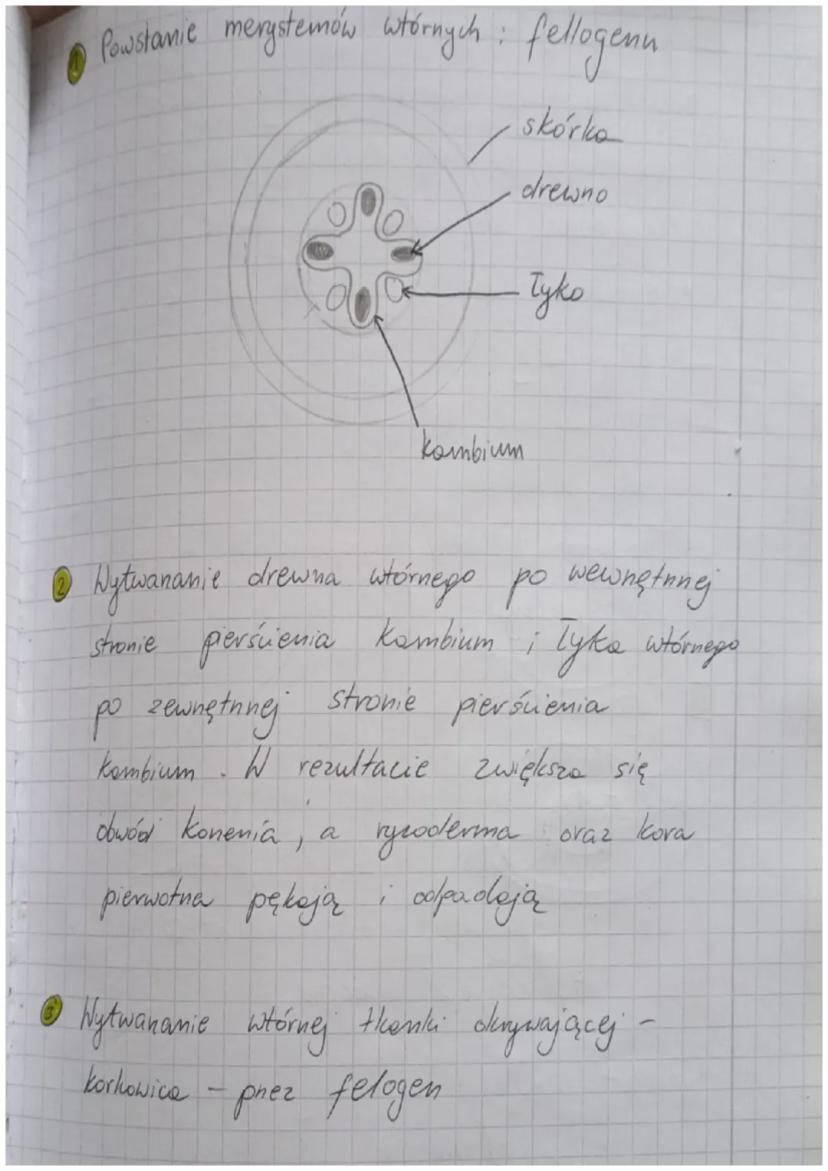 1 Powstanie merystemów wtórnych : fellogenu
skórka
drewno
łyko
kambium
2 Wytwarzanie drewna wtórnego po wewnętrznej
stronie pierścienia kambium i łyka wtórnego
po zewnętrznej stronie pierścienia
kambium . W rezultacie zwiększa się
obwód korzenia , a ryzoderma oraz kora
pierwotna pękają i odpadają
3 Wytwarzanie wtórnej tkanki okrywającej -
korkowica - przez felogen